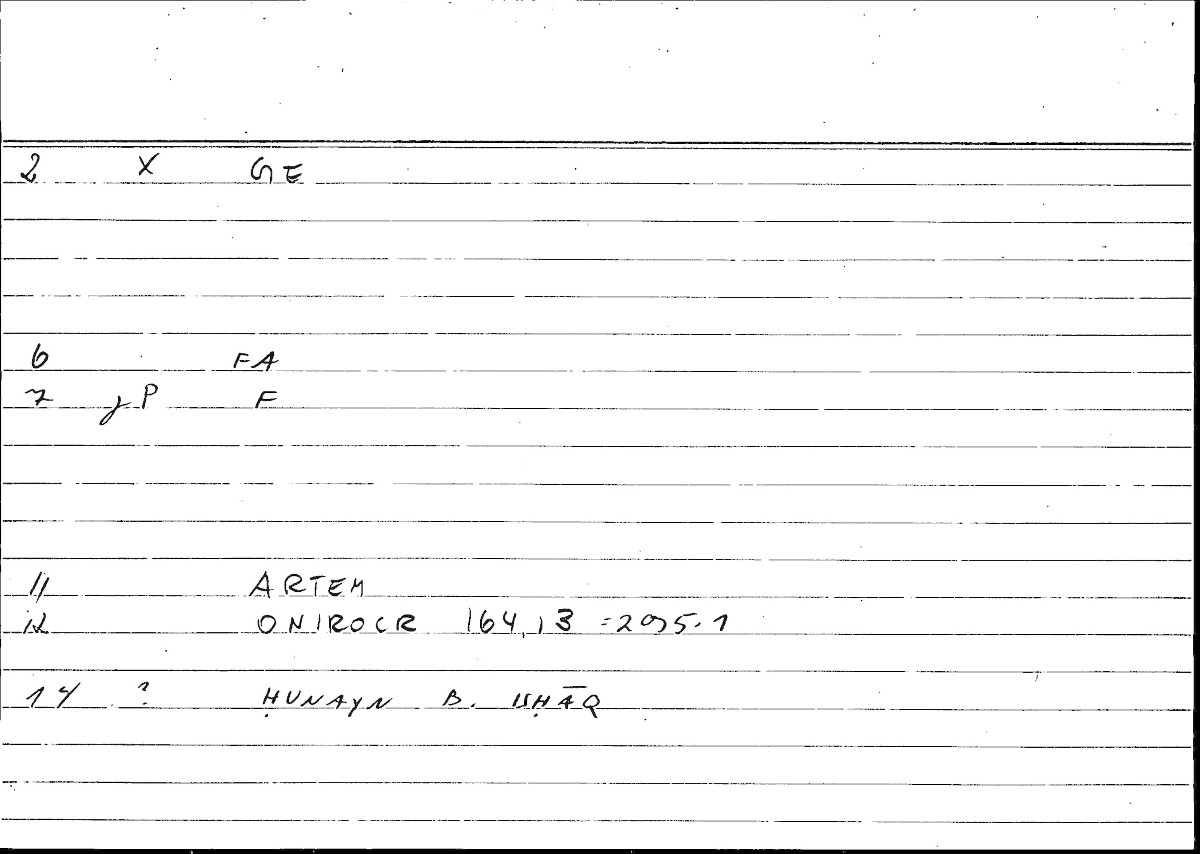 2 X GE
6 FA
7 P F
11 ARTEM
12 ONIROCR 164,13 =295.1
14 ? ḤUNAYN B. ISḤĀQ